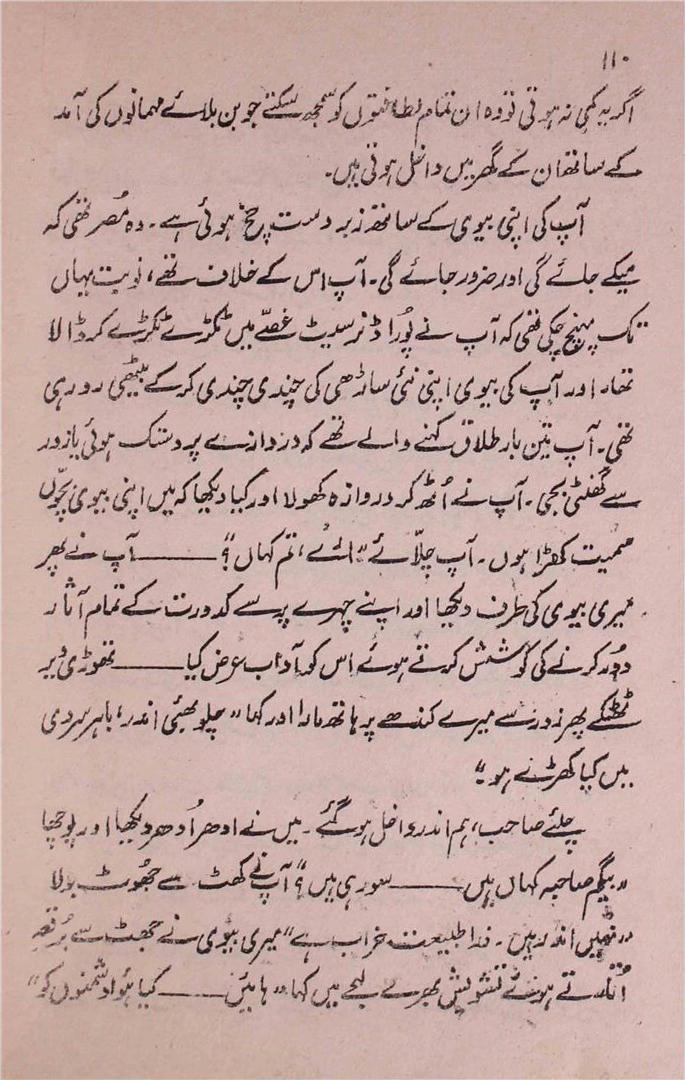 ۱۱۰
اگر یہ کمی نہ ہوتی تو وہ ان تمام لطافتوں کو سمجھ سکتے جو بن بلائے مہمانوں کی آمد
کے ساتھ ان کے گھر میں داخل ہوتی ہیں۔
آپ کی اپنی بیوی کے ساتھ زبردست چخ ہوئی ہے۔ وہ مُصر تھی کہ
میکے جائے گی اور ضرور جائے گی۔ آپ اس کے خلاف تھے، نوبت یہاں
تک پہنچ چکی تھی کہ آپ نے پُورا ڈنر سیٹ غصّے میں ٹکڑے ٹکڑے کر ڈالا
تھا۔ اور آپ کی بیوی اپنی نئی ساڑھی کی چندی چندی کر کے بیٹھی رو رہی
تھی۔ آپ تین بار طلاق کہنے والے تھے کہ دروازے پر دستک ہوئی یا زور
سے گھنٹی بجی۔ آپ نے اُٹھ کر دروازہ کھولا اور کیا دیکھا کہ میں اپنی بیوی بچّوں
سمیت کھڑا ہوں۔ آپ چلّائے ”ائے، تم کہاں؟“ ــــــــ آپ نے پھر
میری بیوی کی طرف دیکھا اور اپنے چہرے پر سے کدورت کے تمام آثار
دُور کرنے کی کوشش کرتے ہوئے اس کو آداب عرض کیا ــــــــ تھوڑی دیر
ٹھٹکے پھر زور سے میرے کندھے پر ہاتھ مارا اور کہا ”چلو بھئی اندر، باہر سردی
میں کیا کھڑے ہو۔“
چلئے صاحب، ہم اندر داخل ہو گئے۔ میں نے ادھر اُدھر دیکھا اور پوچھا
”بیگم صاحبہ کہاں ہیں ــــــــ سو رہی ہیں؟“ آپ نے کھٹ سے جھُوٹ بولا
”نہیں اندر ہیں۔ ذرا طبیعت خراب ہے“ میری بیوی نے جھٹ سے بُرقعہ
اُتارتے ہوئے تشویش بھرے لہجے میں کہا ”ہائیں ــــــــ کیا ہوا دشمنوں کو“